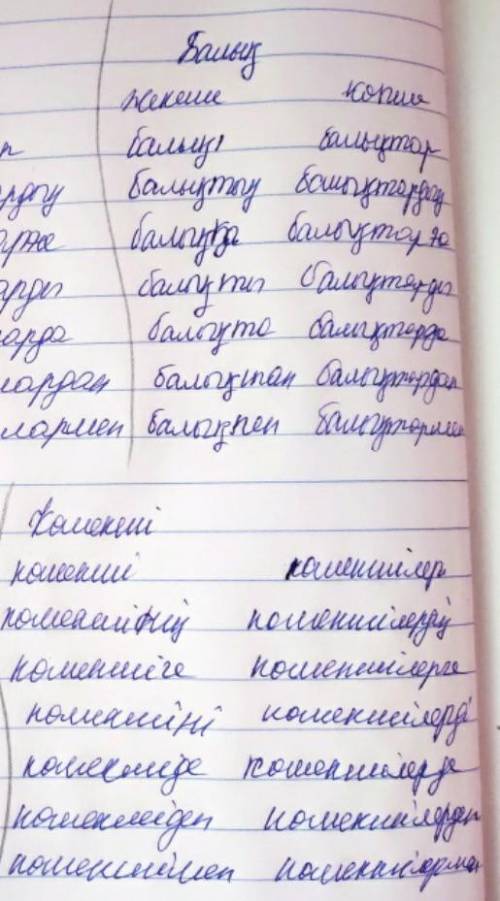 Балық
жекеше көпше
п балық балықтар
ардың балықтың балықтардың
арға балыққа балықтарға
арды балықты балықтарды
арда балықта балықтарда
лардан балықтан балықтардан
лармен балықпен балықтармен
Көмекші
көмекші көмекшілер
көмекшінің көмекшілердің
көмекшіге көмекшілерге
көмекшіні көмекшілерді
көмекшіде көмекшілерде
көмекшіден көмекшілерден
көмекшімен көмекшілермен